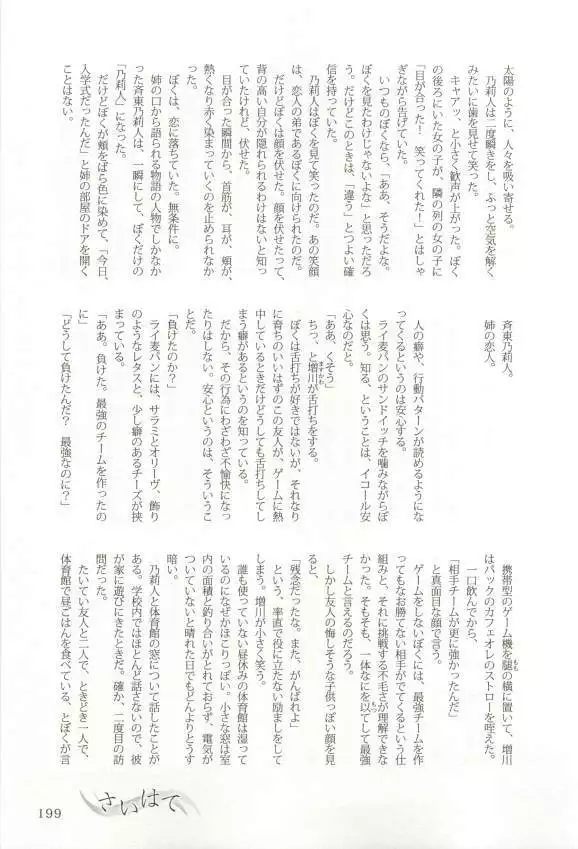 太陽のように、人々を吸い寄せる。
　乃莉人は二度瞬きをし、ふっと空気を解く
みたいに歯を見せて笑った。
　キャアッ、と小さく歓声が上がった。ぼく
の後ろにいた女の子が、隣の列の女の子に
「目が合った！　笑ってくれた！」とはしゃ
ぎながら告げていた。
　いつものぼくなら、「ああ、そうだよな。
ぼくを見たわけじゃないよな」と思っただろ
う。だけどこのときは、「違う」とつよい確
信を持っていた。
　乃莉人はぼくを見て笑ったのだ。あの笑顔
は、恋人の弟であるぼくに向けられたのだ。
　だけどぼくは顔を伏せた。顔を伏せたって、
背の高い自分が隠れられるわけはないと知っ
ていたけれど、伏せた。
　目が合った瞬間から、首筋が、耳が、頬が、
熱くなり赤く染まっていくのを止められなか
った。
　ぼくは、恋に落ちていた。無条件に。
　姉の口から語られる物語の人物でしかなか
った斉東乃莉人は、一瞬にして、ぼくだけの
「乃莉人」になった。
　だけどぼくが頬をばら色に染めて、「今日、
入学式だったんだ」と姉の部屋のドアを開く
ことはない。
　斉東乃莉人。
　姉の恋人。
　人の癖や、行動パターンが読めるようにな
ってくるというのは安心する。
　ライ麦パンのサンドイッチを噛みながらぼ
くは思う。知る、ということは、イコール安
心なのだと。
「ああ、くそう」
　ちっ、と増川が舌打ちをする。
　ぼくは舌打ちが好きではないが、それなり
に育ちのいいはずのこの友人が、ゲームに熱
中しているときだけどうしても舌打ちしてし
まう癖があるというのを知っている。
　だから、その行為にわざわざ不愉快になっ
たりはしない。安心というのは、そういうこ
とだ。
「負けたのか？」
　ライ麦パンには、サラミとオリーヴ、飾り
のようなレタスと、少し癖のあるチーズが挟
まっている。
「ああ。負けた。最強のチームを作ったの
に」
「どうして負けたんだ？　最強なのに？」
　携帯型のゲーム機を腿の横に置いて、増川
はパックのカフェオレのストローを咥えた。
　一口飲んでから、
「相手チームが更に強かったんだ」
　と真面目な顔で言う。
　ゲームをしないぼくには、最強チームを作
ってもなお勝てない相手がでてくるという仕
組みと、それに挑戦する不毛さが理解できな
かった。そもそも、一体なにを以てして最強
チームと言えるのだろう。
　しかし友人の悔しそうな子供っぽい顔を見
ると、
「残念だったな。また、がんばれよ」
　という、率直で役に立たない励ましをして
しまう。増川が小さく笑う。
　誰も使っていない昼休みの体育館は湿って
いるのになぜかほこりっぽい。小さな窓は室
内の面積と釣り合いがとれておらず、電気が
ついていないと晴れた日でもどんよりとうす
暗い。
　乃莉人と体育館の窓について話したことが
ある。学校内ではほとんど話さないので、彼
が家に遊びにきたときだ。確か、二度目の訪
問だった。
　たいてい友人と二人で、ときどき一人で、
体育館で昼ごはんを食べている、とぼくが言
さいはて
199